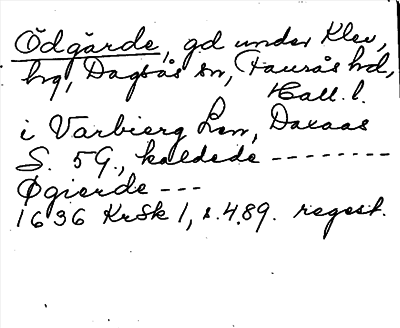 Ödgärde, gd under Klev,
hg, Dagsås sn, Faurås hd,
Hall. l.
i Varbierg Len, Daxaas
S. 5 G., kaldede --------
Øgierde ---
1636 KrSk 1, s. 489. regest.